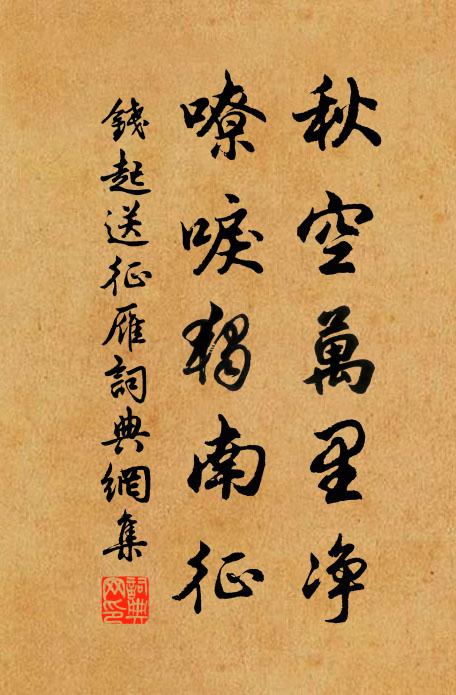 秋空萬里净
嘹唳獨南征
錢起送征雁詞典網集
詞典網印